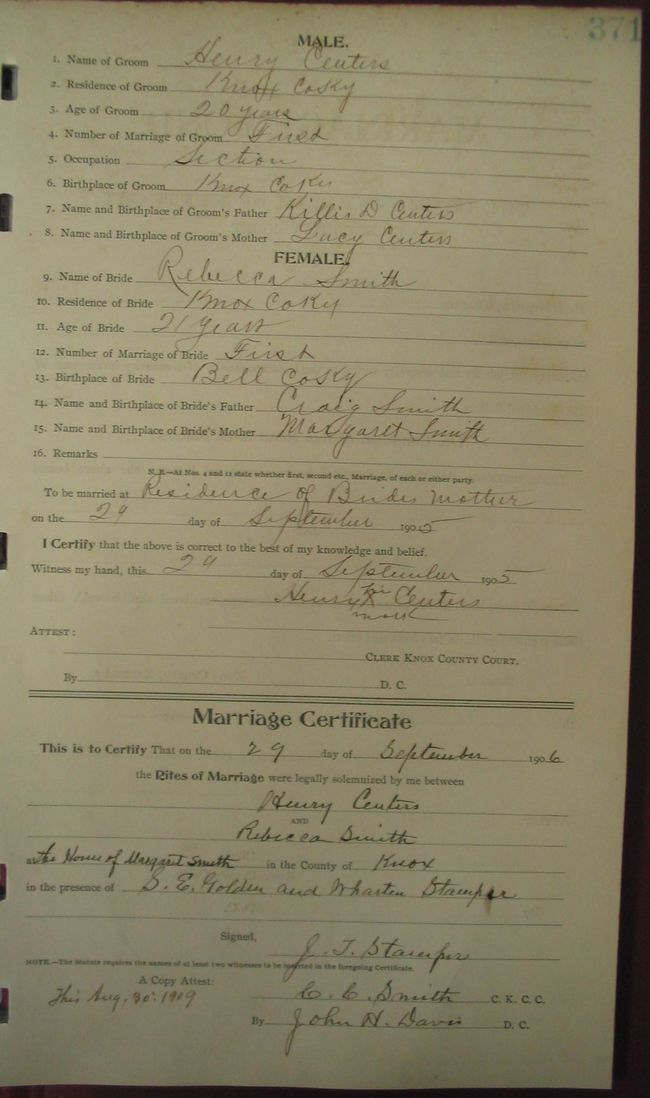 371
MALE.
1. Name of Groom Henry Centers
2. Residence of Groom Knox Co Ky
3. Age of Groom 20 years
4. Number of Marriage of Groom First
5. Occupation Section
6. Birthplace of Groom Knox Co Ky
7. Name and Birthplace of Groom's Father Killis D Centers
8. Name and Birthplace of Groom's Mother Lucy Centers
FEMALE.
9. Name of Bride Rebecca Smith
10. Residence of Bride Knox Co Ky
11. Age of Bride 21 years
12. Number of Marriage of Bride First
13. Birthplace of Bride Bell Co Ky
14. Name and Birthplace of Bride's Father Craig Smith
15. Name and Birthplace of Bride's Mother Margaret Smith
16. Remarks
N. B.—At Nos. 4 and 12 state whether first, second etc., Marriage, of each or either party.
To be married at Residence of Brides Mother
on the 29 day of September 1905
I Certify that the above is correct to the best of my knowledge and belief.
Witness my hand, this 29 day of September 1905
Henry his X Centers
mark
ATTEST:
CLERK KNOX COUNTY COURT.
By D. C.
Marriage Certificate
This is to Certify That on the 29 day of September 1906
the Rites of Marriage were legally solemnized by me between
Henry Centers
AND
Rebecca Smith
at the Home of Margaret Smith in the County of Knox
in the presence of S. E. Golden and Wharten Stamper
Signed,
J. T. Stamper
NOTE.—The Statute requires the names of at least two witnesses to be inserted in the foregoing Certificate.
A Copy Attest:
This Aug. 30. 1909 C. C. Smith C. K. C. C.
By John H. Davis D. C.